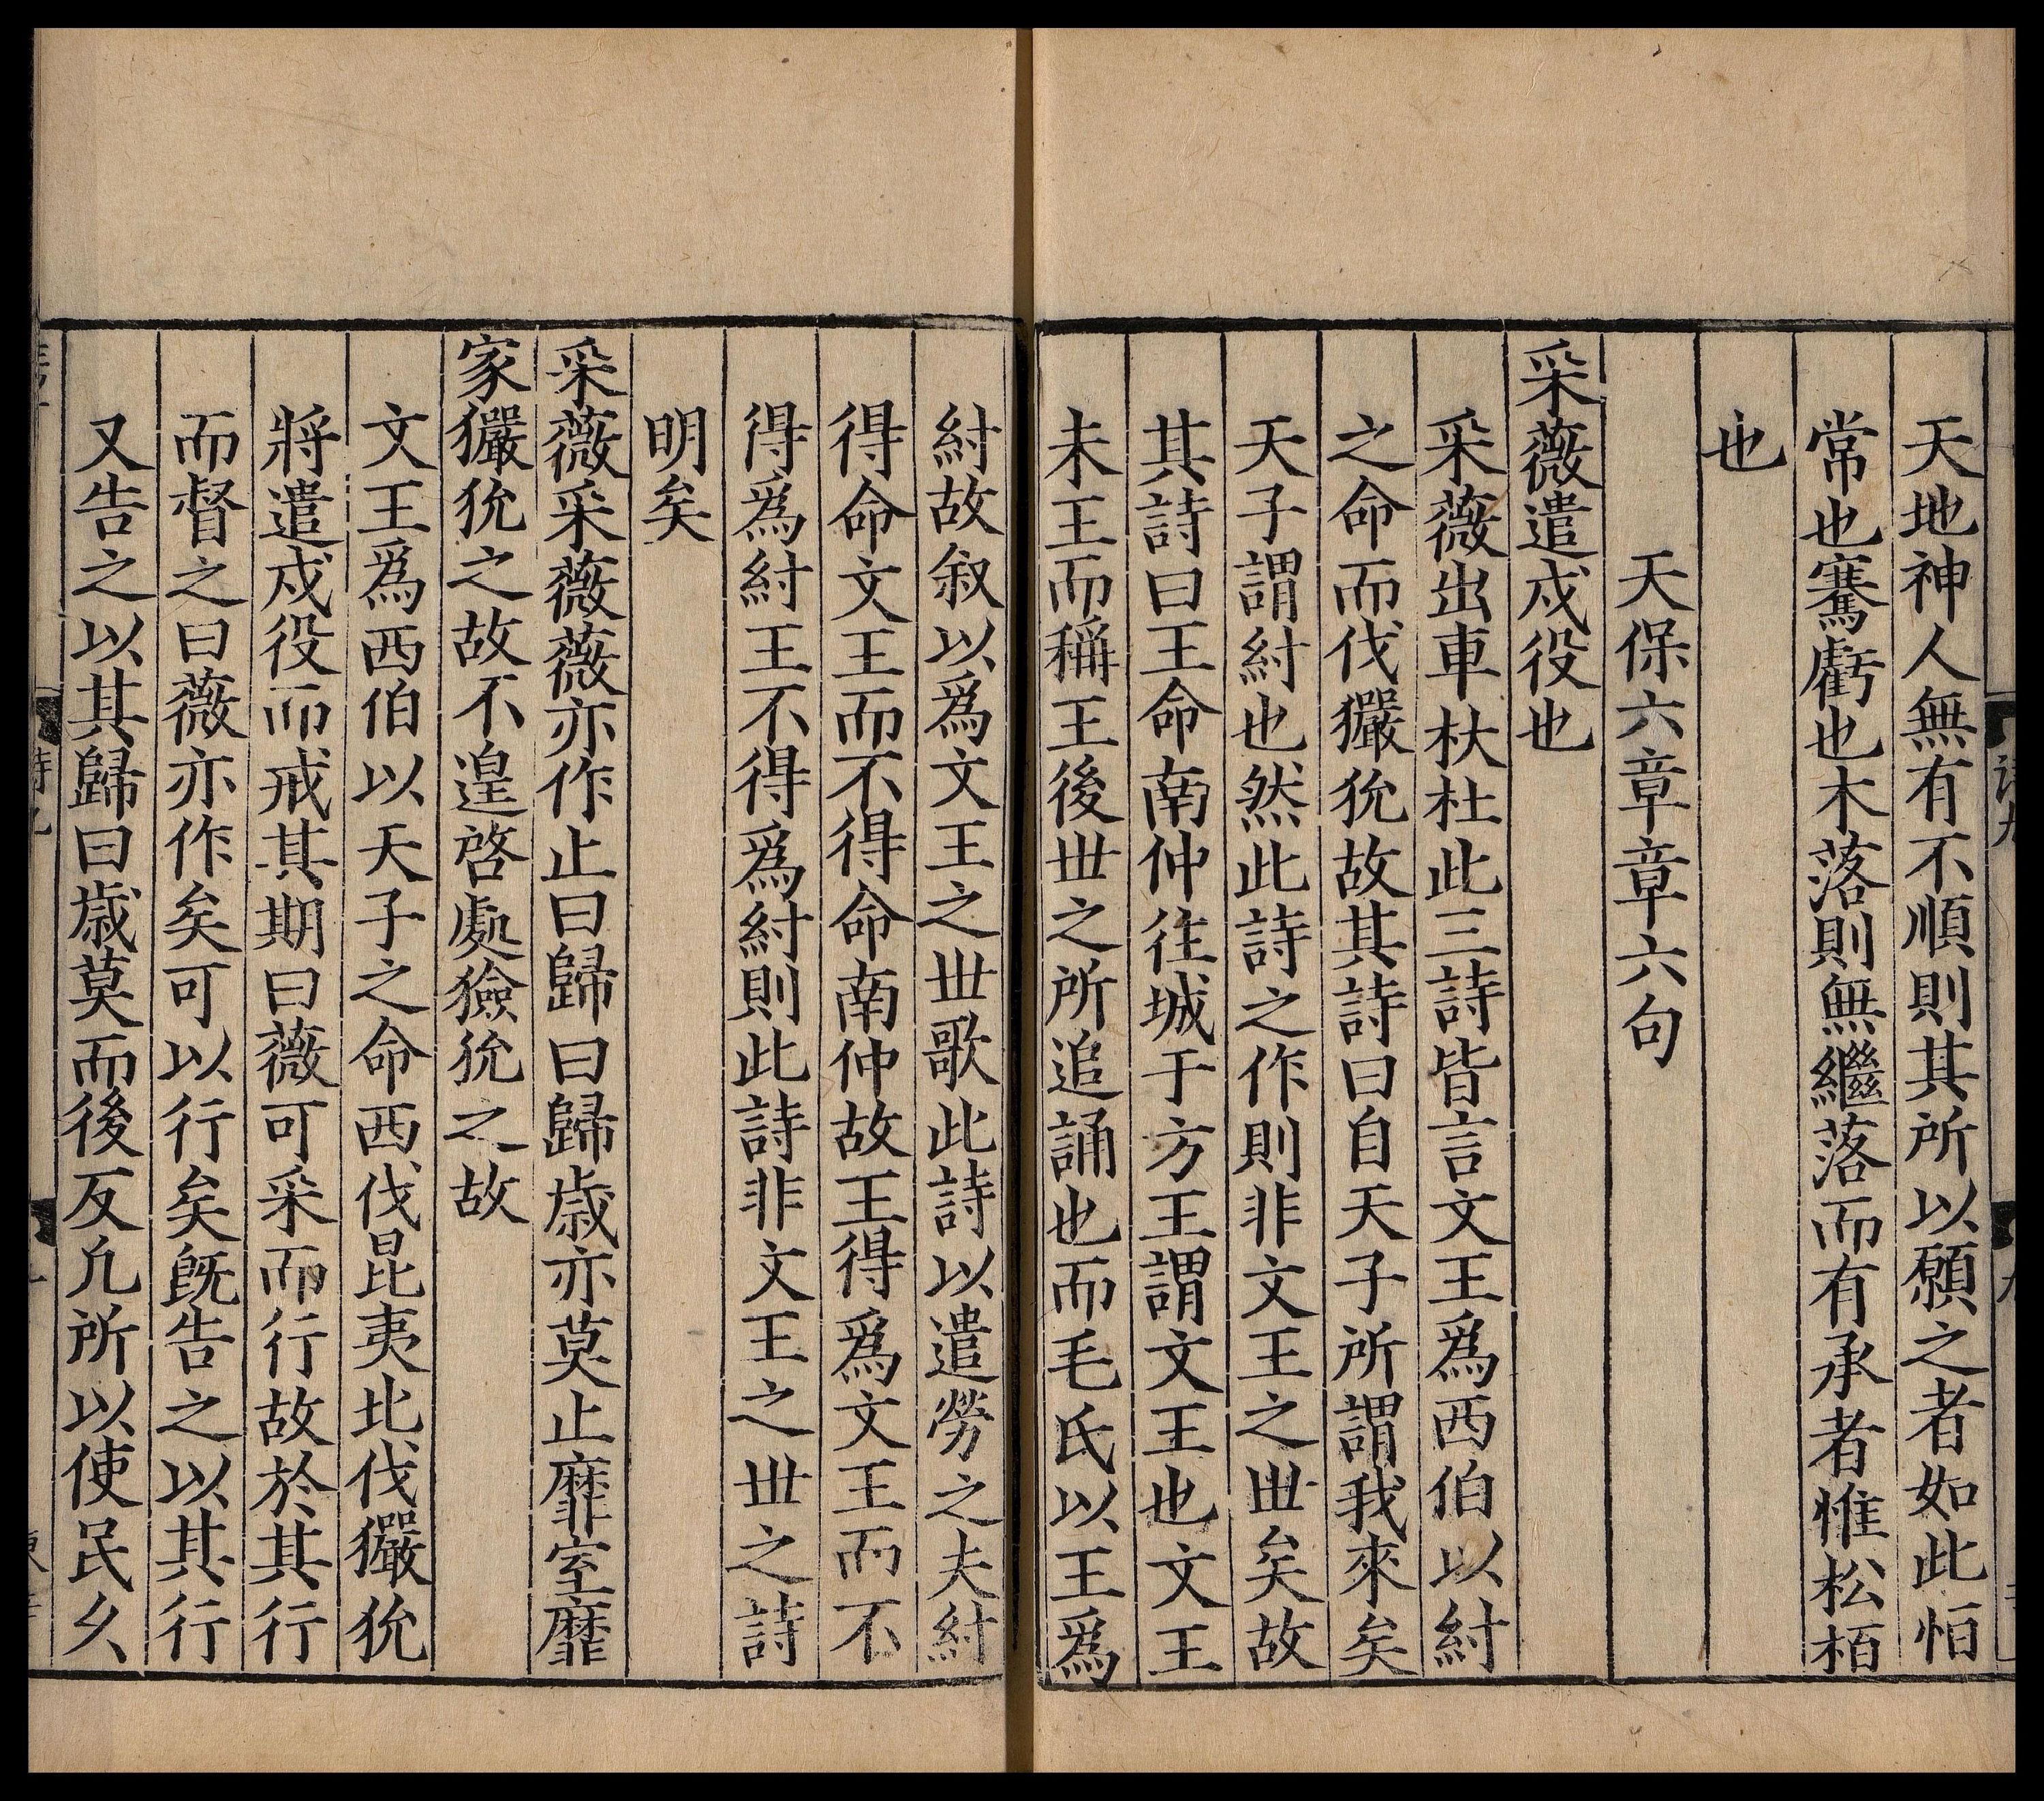 天地神人無有不順則其所以願之者如此恒
常也騫虧也木落則無繼落而有承者惟松栢
也
天保六章章六句
采薇遣戍役也
采薇出車杕杜此三詩皆言文王爲西伯以紂
之命而伐玁狁故其詩曰自天子所謂我來矣
天子謂紂也然此詩之作則非文王之世矣故
其詩曰王命南仲往城于方王謂文王也文王
未王而稱王後世之所追誦也而毛氏以王爲
紂故叙以爲文王之世歌此詩以遣勞之夫紂
得命文王而不得命南仲故王得爲文王而不
得爲紂王不得爲紂則此詩非文王之世之詩
明矣
采薇采薇薇亦作止曰歸曰歸歲亦莫止靡室靡
家玁狁之故不遑啓處獫狁之故
文王爲西伯以天子之命西伐昆夷北伐玁狁
將遣戍役而戒其期曰薇可采而行故於其行
而督之曰薇亦作矣可以行矣旣告之以其行
又告之以其歸曰歲莫而後反凢所以使民乆